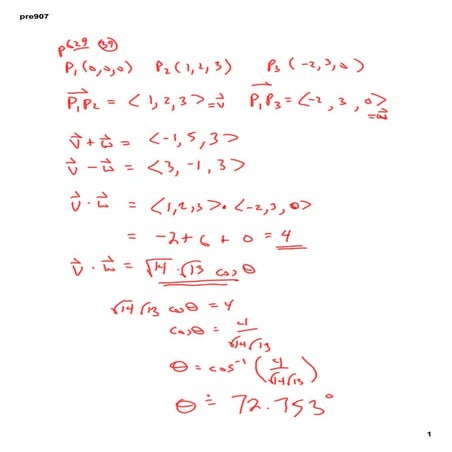 pre907
p629 39
P₁(0,0,0) P₂(1,2,3) P₃(-2,3,0)
P₁P₂→ = <1,2,3> = v→ P₁P₃→ = <-2,3,0> = w→
v→ + w→ = <-1,5,3>
v→ - w→ = <3,-1,3>
v→ · w→ = <1,2,3> · <-2,3,0>
= -2+6+0 = 4
v→ · w→ = √14 · √13 cos θ
√14 √13 cos θ = 4
cos θ = 4/(√14 √13)
θ = cos⁻¹(4/(√14 √13))
θ ≐ 72.753°
1